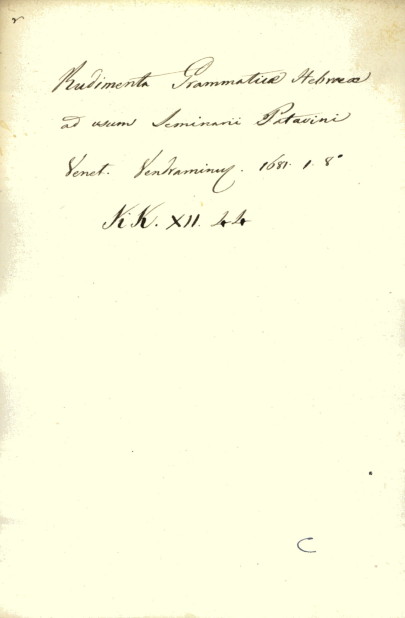 Rudimenta Grammaticæ Hebrææ
ad usum Seminarii Patavini
Venet. Vendraminus. 1681. 1. 8°
KK. XII. 44
C